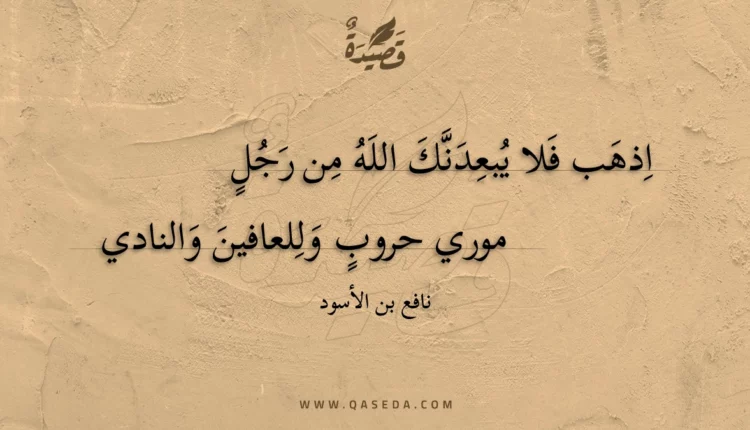 قَصِيدَةٌ
اِذهَب فَلا يُبعِدَنَّكَ اللَهُ مِن رَجُلٍ
موري حروبٍ وَلِلعافينَ وَالنادي
نافع بن الأسود
WWW.QASEDA.COM